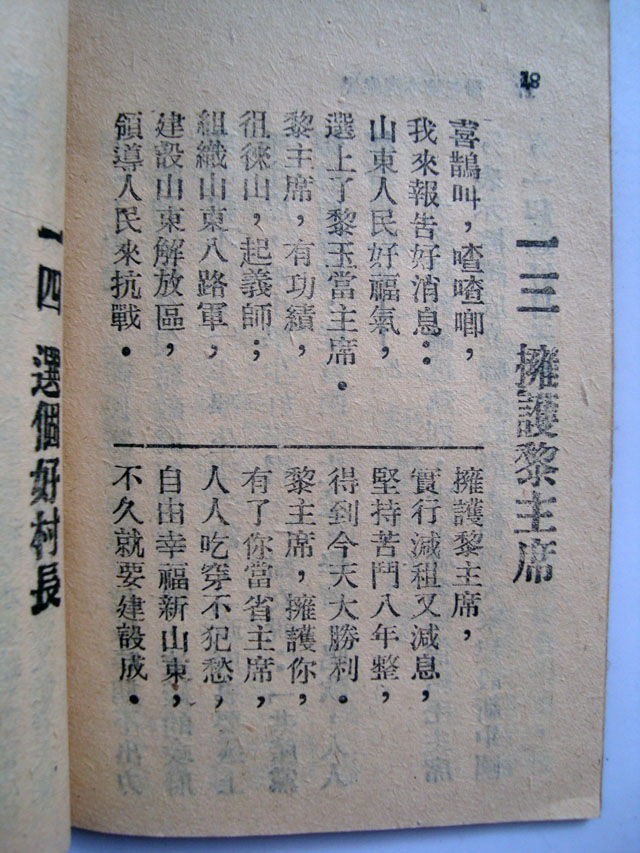 18
一三 擁護黎主席
喜鵲叫，喳喳唧，
我來報告好消息：
山東人民好福氣，
選上了黎玉當主席．
黎主席，有功績，
徂徠山，起義師；
組織山東八路軍，
建設山東解放區，
領導人民來抗戰．
擁護黎主席，
實行減租又減息，
堅持苦鬥八年整，
得到今天大勝利．
黎主席，擁護你，
有了你當省主席，
人人吃穿不犯愁，
自由幸福新山東，
不久就要建設成．
一四 選個好村長